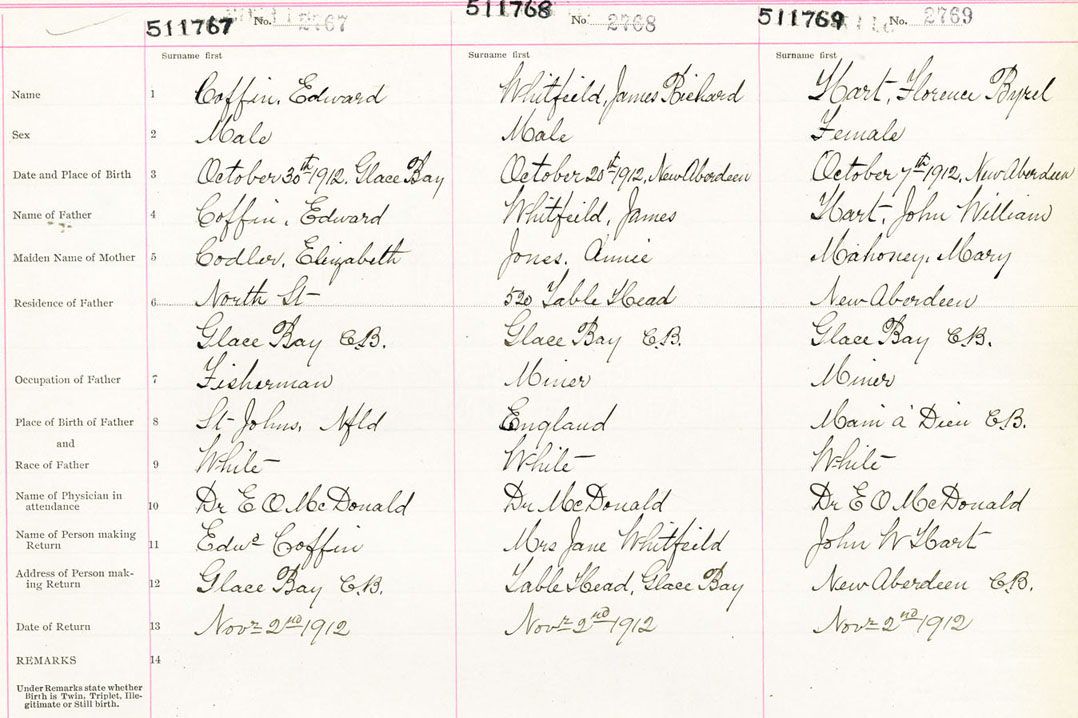 511767 No. 2767 511768 No. 2768 511769 No. 2769
Surname first Surname first Surname first
Name 1 Coffin, Edward Whitfeild, James Richard Hart, Florence Byrel
Sex 2 Male Male Female
Date and Place of Birth 3 October 30th 1912. Glace Bay October 20th 1912, New Aberdeen October 7th 1912, New Aberdeen
Name of Father 4 Coffin, Edward Whitfeild, James Hart, John William
Maiden Name of Mother 5 Codler, Elizabeth Jones, Annie Mahoney, Mary
Residence of Father 6 North St 520 Table Head New Aberdeen
Glace Bay C.B. Glace Bay C.B. Glace Bay C.B.
Occupation of Father 7 Fisherman Miner Miner
Place of Birth of Father 8 St Johns, Nfld England Main à Dieu C.B.
and
Race of Father 9 White White White
Name of Physician in
attendance 10 Dr E O McDonald Dr McDonald Dr E O McDonald
Name of Person making
Return 11 Edwd Coffin Mrs Jane Whitfeild John W Hart
Address of Person mak-
ing Return 12 Glace Bay C.B. Table Head, Glace Bay New Aberdeen C.B.
Date of Return 13 Novr 2nd 1912 Novr 2nd 1912 Novr 2nd 1912
REMARKS 14
Under Remarks state whether
Birth is Twin, Triplet, Ille-
gitimate or Still birth.